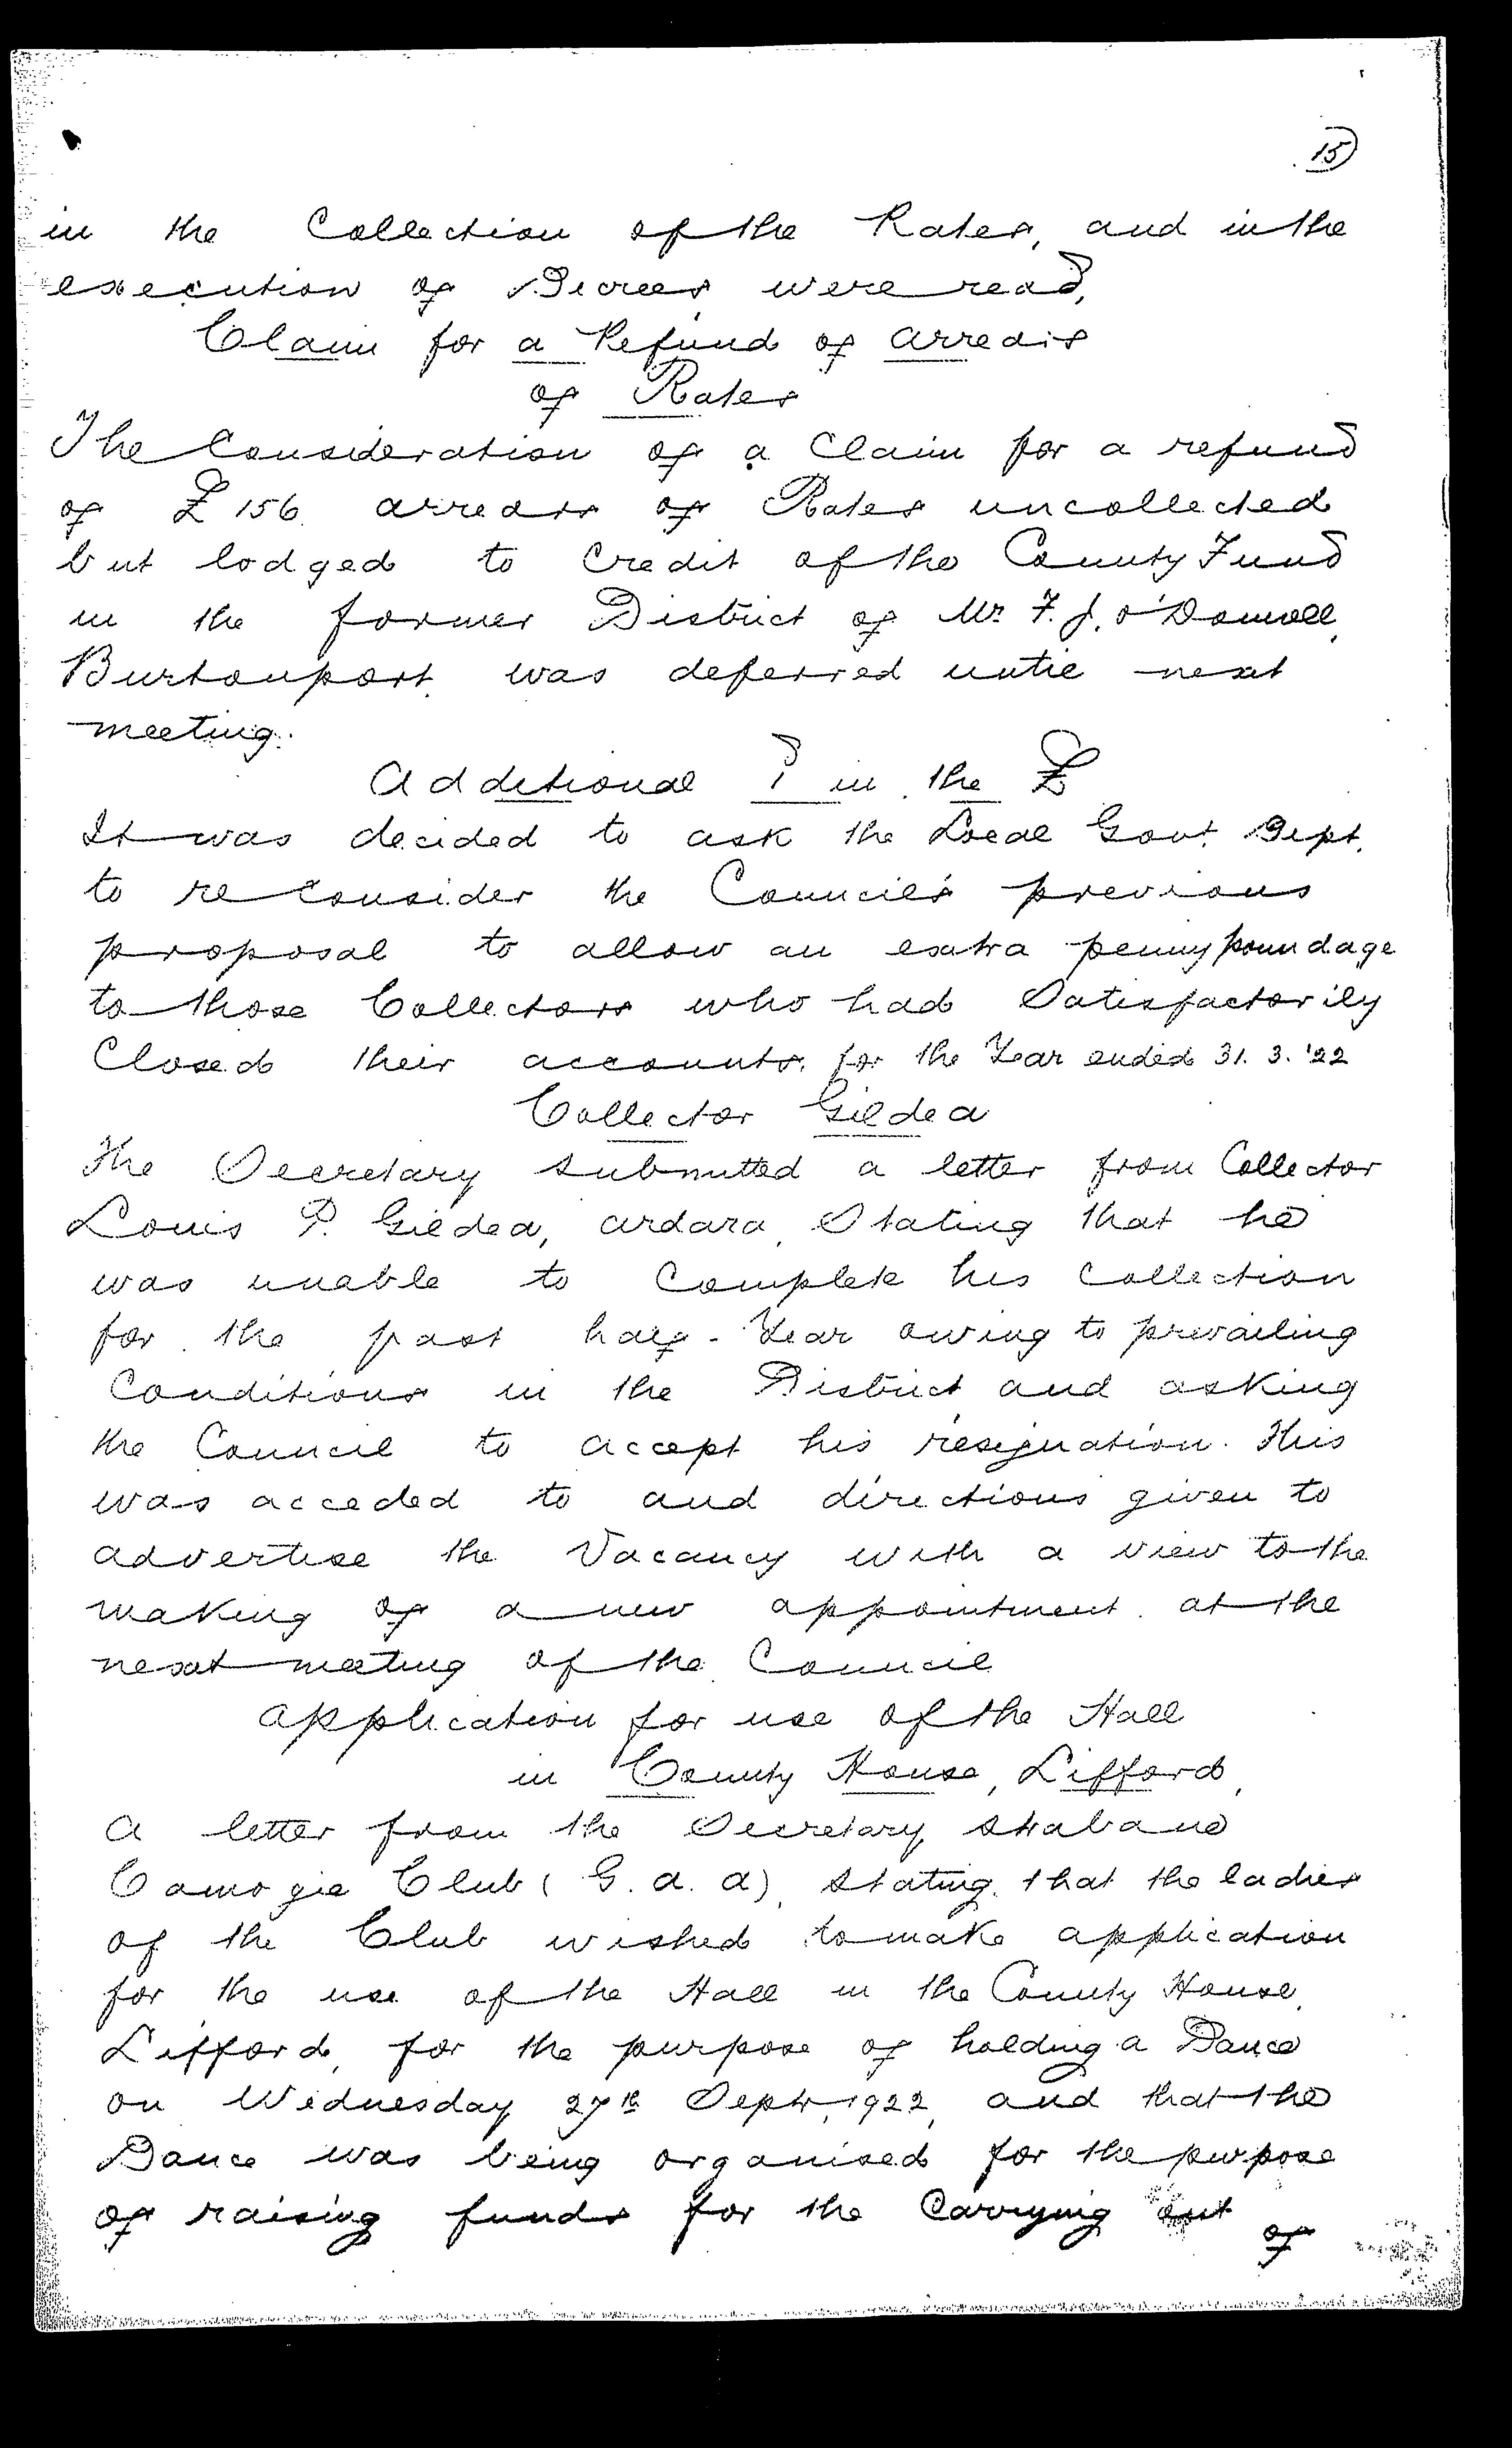 15
in the Collection of the Rates, and in the
execution of Decrees were read,
Claim for a Refund of arrears
of Rates
The Consideration of a Claim for a refund
of £156. arrears of Rates uncollected
but lodged to Credit of the County Fund
in the former District of Mr. F. J. O'Donnell,
Burtonport was deferred until next
meeting.
Additional 1d in the £
It was decided to ask the Local Govt. Dept.
to reconsider the Council's previous
proposal to allow an extra penny poundage
to those Collectors who had Satisfactorily
Closed their accounts, for the Year ended 31. 3. '22
Collector Gildea
The Secretary submitted a letter from Collector
Louis P. Gildea, Ardara, Stating that he
was unable to Complete his Collection
for the past half-Year owing to prevailing
Conditions in the District and asking
the Council to accept his resignation. This
was acceded to and directions given to
advertise the Vacancy with a view to the
making of a new appointment at the
next meeting of the Council
Application for use of the Hall
in County House, Lifford,
A letter from the Secretary, Strabane
Camogie Club (G. A. A), Stating that the ladies
of the Club wished to make application
for the use of the Hall in the County House,
Lifford, for the purpose of holding a Dance
on Wednesday 27th Septr, 1922, and that the
Dance was being organised for the purpose
of raising funds for the Carrying out
of